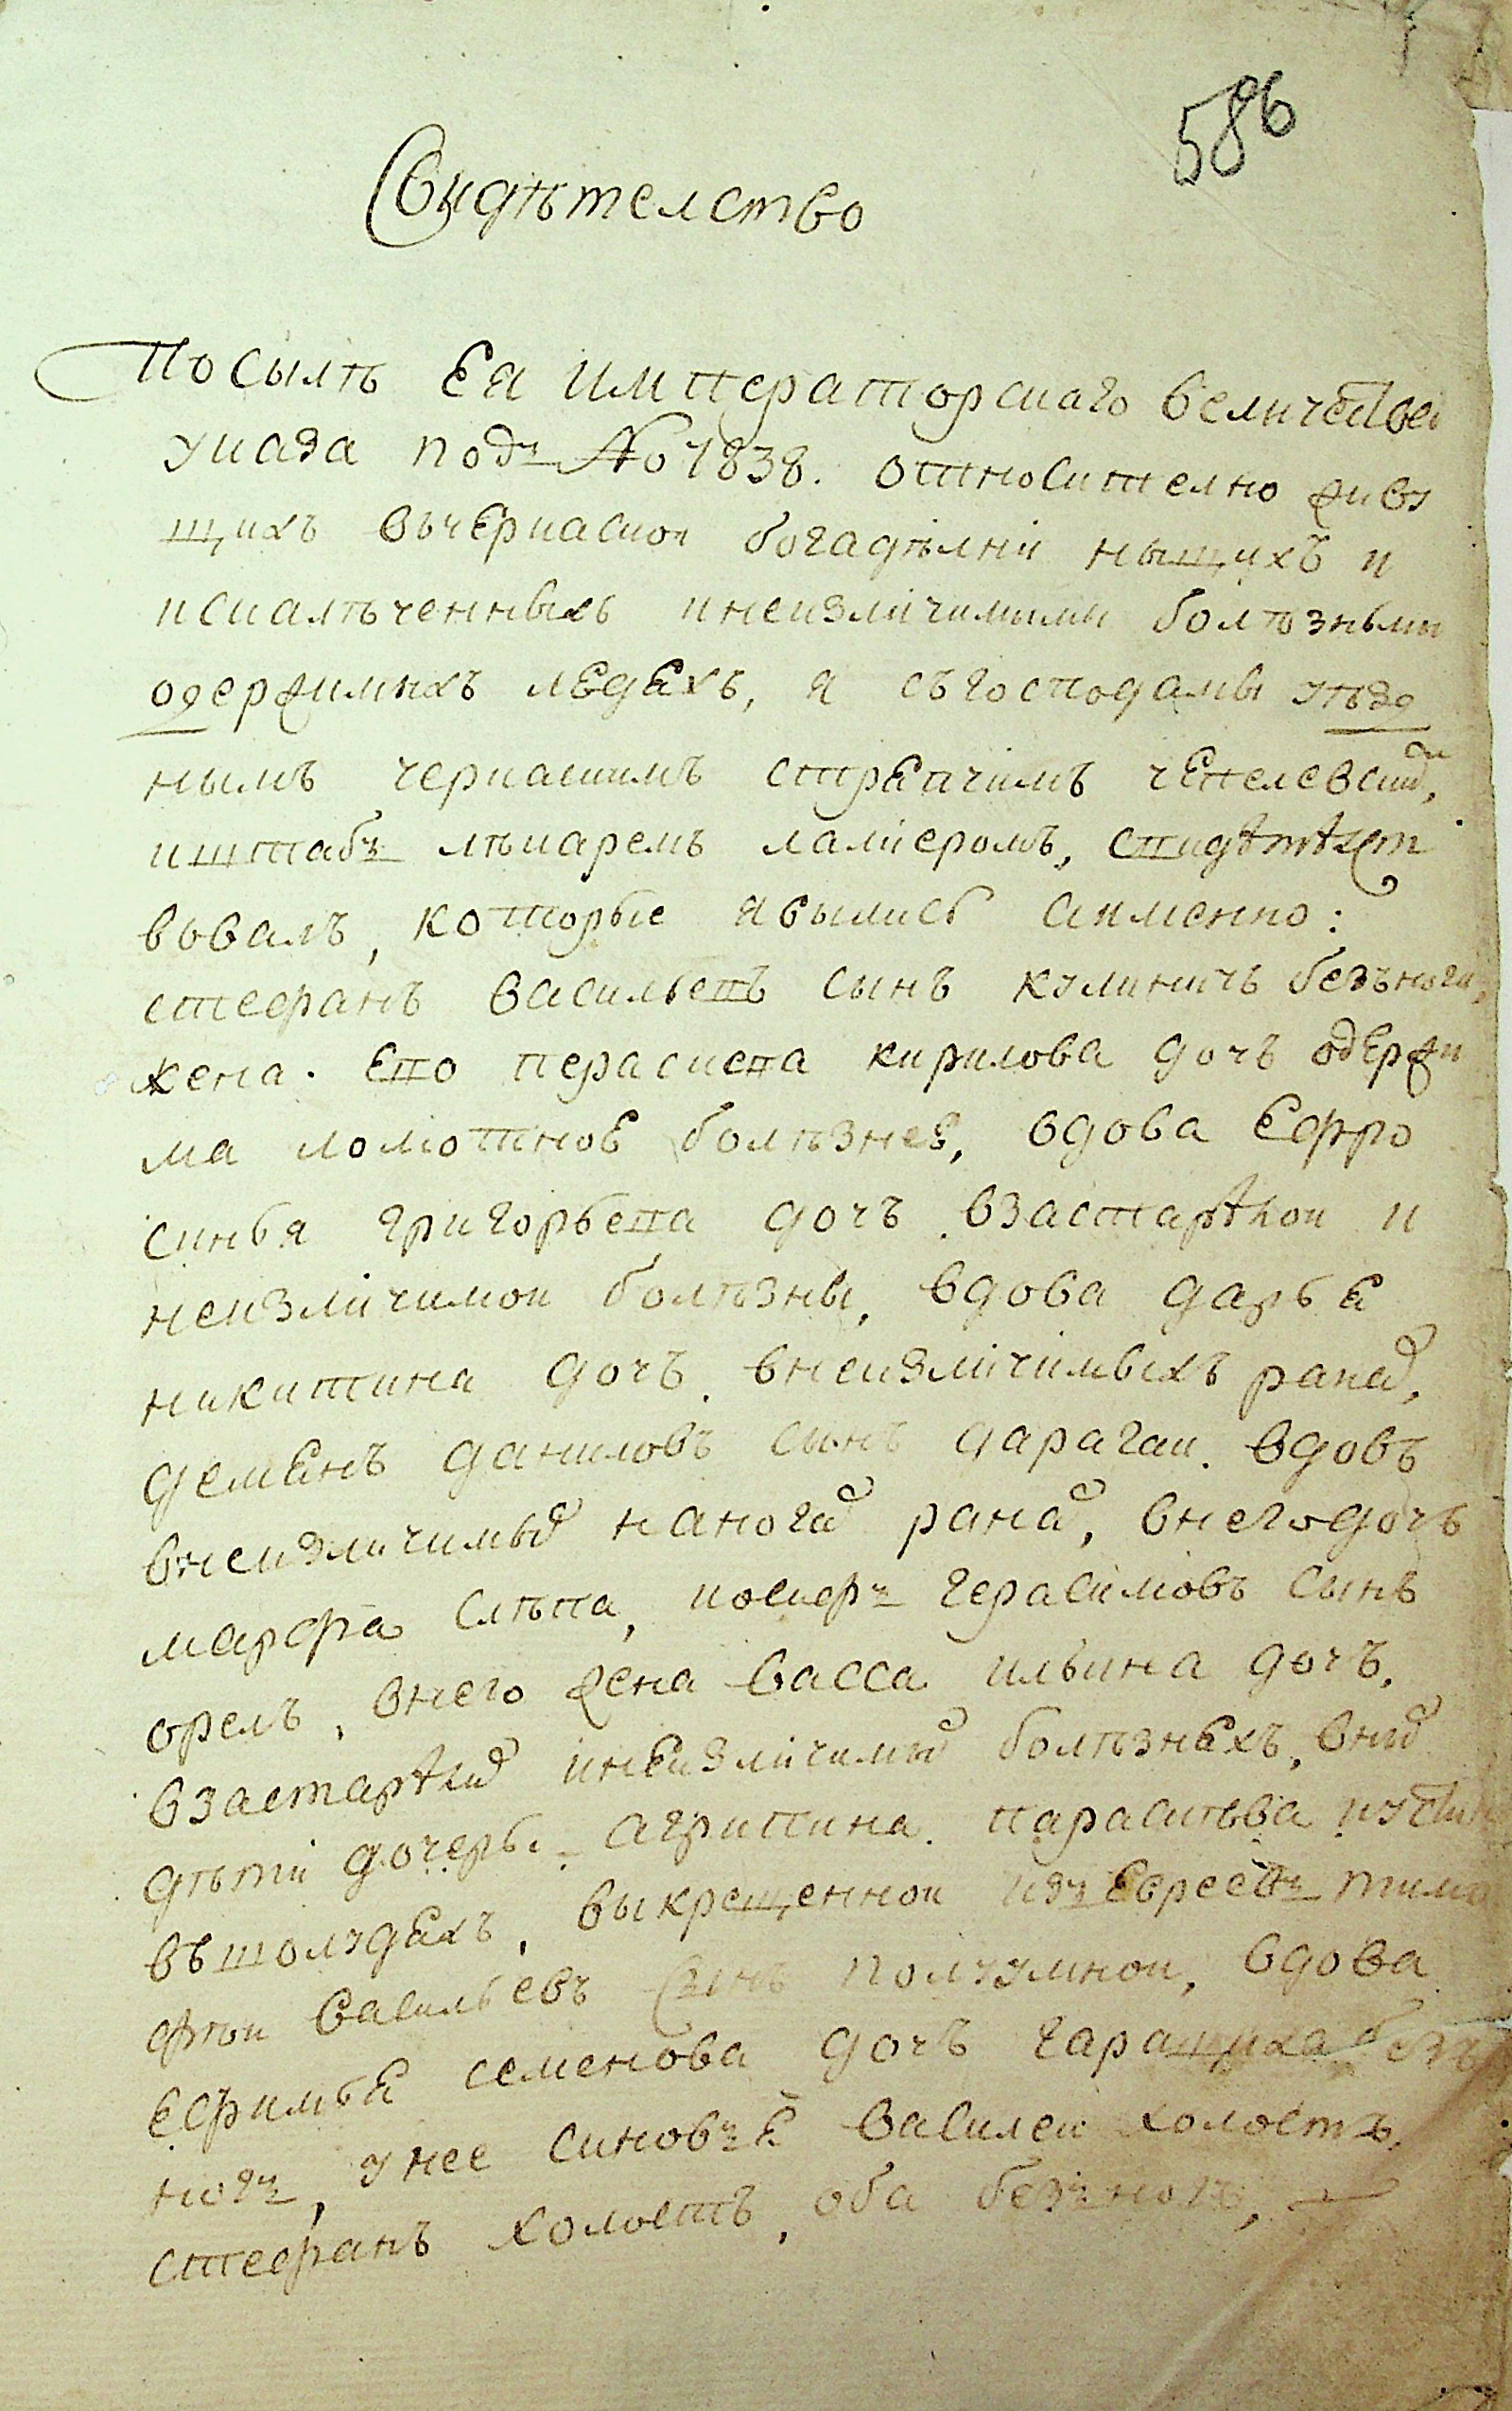 586
Свидѣтелство
По сылѣ Ея Императорскаго величества
указа подъ № 1838. относително живу
щихъ въчеркаской богадѣлнѣ нищихъ и
искалѣченныхъ инеизлѣчимыми болѣзньми
одержимыхъ людяхъ, я съгосподамы уѣзд
нымъ черкаскимъ стряпчимъ чепелевским,
иштабъ лѣкаремъ ламіеромъ, свидѣтелст
вовалъ, которые явылись аименно:
стефанъ васильевъ сынъ кулиничъ безъноги,
жена. его пераскева кирилова дочъ одержи
ма ломотною болѣзнею, вдова Ефро
синья григорьева дочъ взастарѣлои и
неизлѣчимои болѣзны, вдова дарья
никитина дочъ. внеизлѣчимыхъ ранах,
демянъ даниловъ сынъ дараган. вдовъ
внеизлѣчимых наногах ранах, внегодочъ
марфа слѣпа, иосифъ герасимовъ сынъ
орелъ, внего жена васса ильина дочъ,
взастарѣлих инеизлѣчимых болѣзняхъ, вних
дѣти дочеры. агрипина. параскѣва иустин
въшолудяхъ, выкрещенной изъ Евреевъ тимо
фѣи васильевъ сынъ полуумнои, вдова
Ефимья семенова дочъ гаращиха безъ
ногъ, унее синовъя василеи холостъ,
стефанъ холостъ, оба безъногъ,